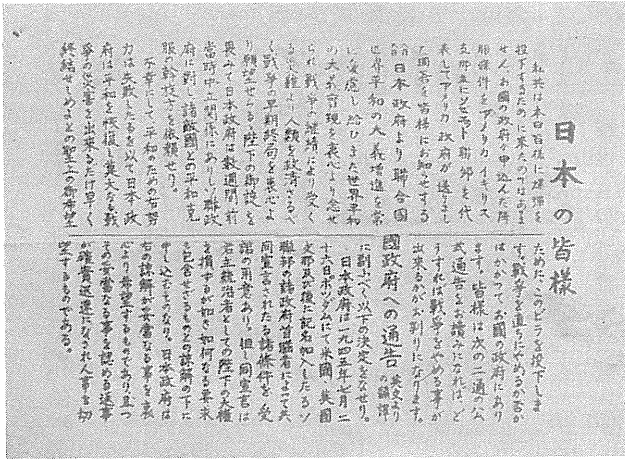 日本の皆様
私共は本日皆様に爆弾を
投下するために来たのではありま
せん。お國の政府が申込んだ降
服條件をアメリカ イギリス
支那並にソビエット聯邦を代
表してアメリカ政府が送りまし
た囘答を皆様にお知らせする
ために、このビラを投下しま
す。戰爭を直ちにやめるか否か
はかかってお國の政府にあり
ます。皆様は次の二通の公
式通告をお讀みになれば、ど
うすれば戰爭をやめる事が
出来るかがお判りになります。
日本政府より聯合
國政府への通告 英文よりの飜譯
世界平和の大義増進を常
に憂慮し給ひまた世界平和
の大義實現を衷心より念ぜ
られ戰爭の繼續により受く
る災難より人類を救済さるべ
く戰爭の早期終局を衷心よ
り願望せらるゝ陛下の御諚を
畏みて日本政府は數週間前
當時中立關係にありしソ聯政
府に對し諸敵國との平和克
服の斡旋方を依頼せり。
不幸にして平和のための右努
力は失敗したるを以て日本政
府は平和を恢復し莫大なる戰
爭の災害を出來るだけ早く
終結せしめよとの聖上の御希望
に副ふべく以下の決定をなせり。
日本政府は一九四五年七月二
十六日ポツダムにて米國、英國
支那及び後に記名加入したるソ
聯邦の諸政府首腦者によって共
同宣言されたる諸條件を受
諾の用意あり。但し同宣言は
君主統治者としての陛下の大權
を損するが如き如何なる要求
も包含せざるものとの諒解の下に
申し込むものなり。日本政府は
右の諒解が妥當なる事を衷
心より希望するものであり且つ
その妥當なる事を認める返事
が確實迅速になされん事を切
望するものである。